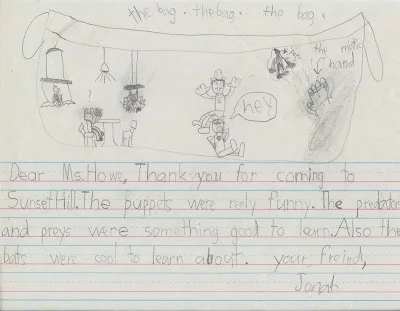 the bag. the bag. the bag.
the matic
hand
?
hey
Dear Ms. Howe, Thank you for coming to
Sunset Hill. The puppets were realy funny. The predator
and preys were something good to learn. Also the
bats were cool to learn about. your freind,
Jonah